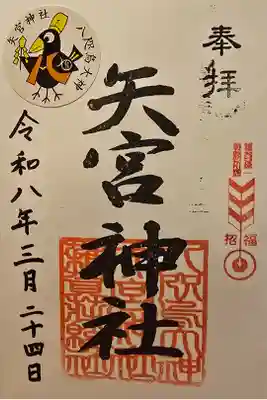 奉拝
招福
矢宮神社
八咫烏大神
矢宮神社
令和八年三月二十四日